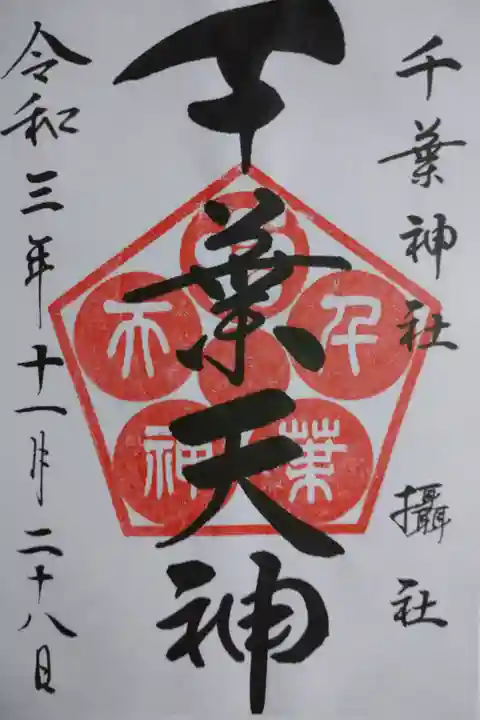 千葉神社 攝社
千葉天神
令和三年十一月二十八日
千
葉
天
神